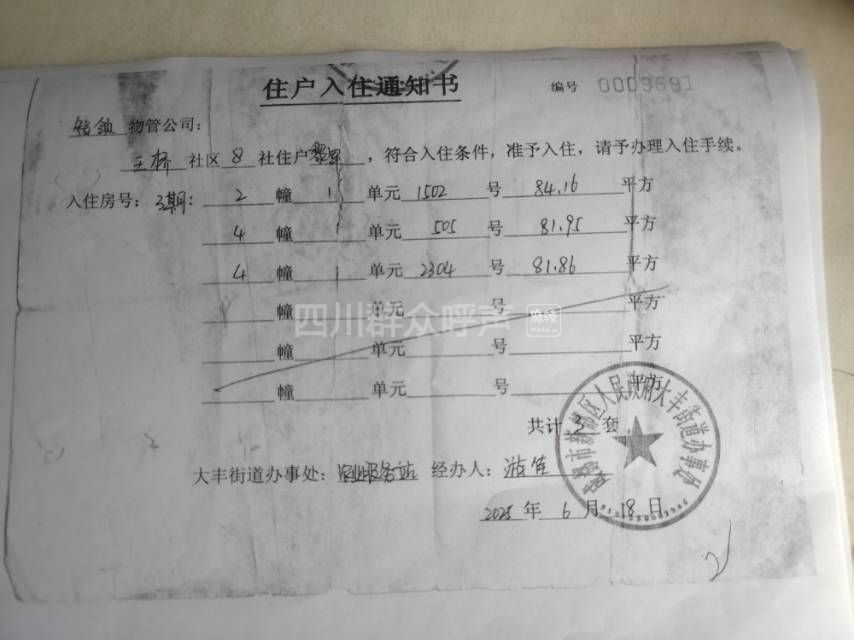 住户入住通知书
编号 0009691
物管公司：
三桥 社区 8 社住户，符合入住条件，准予入住，请予办理入住手续。
入住房号：3期： 2 幢 1 单元 1502 号 84.16 平方
4 幢 1 单元 505 号 81.95 平方
4 幢 1 单元 2304 号 81.86 平方
幢 单元 号 平方
四川群众呼声
幢 单元 号 平方
幢 单元 号 平方
共计 3 套
成都市新都区人民政府大丰街道办事处
大丰街道办事处： 服务站 经办人：
年 6 月 18 日